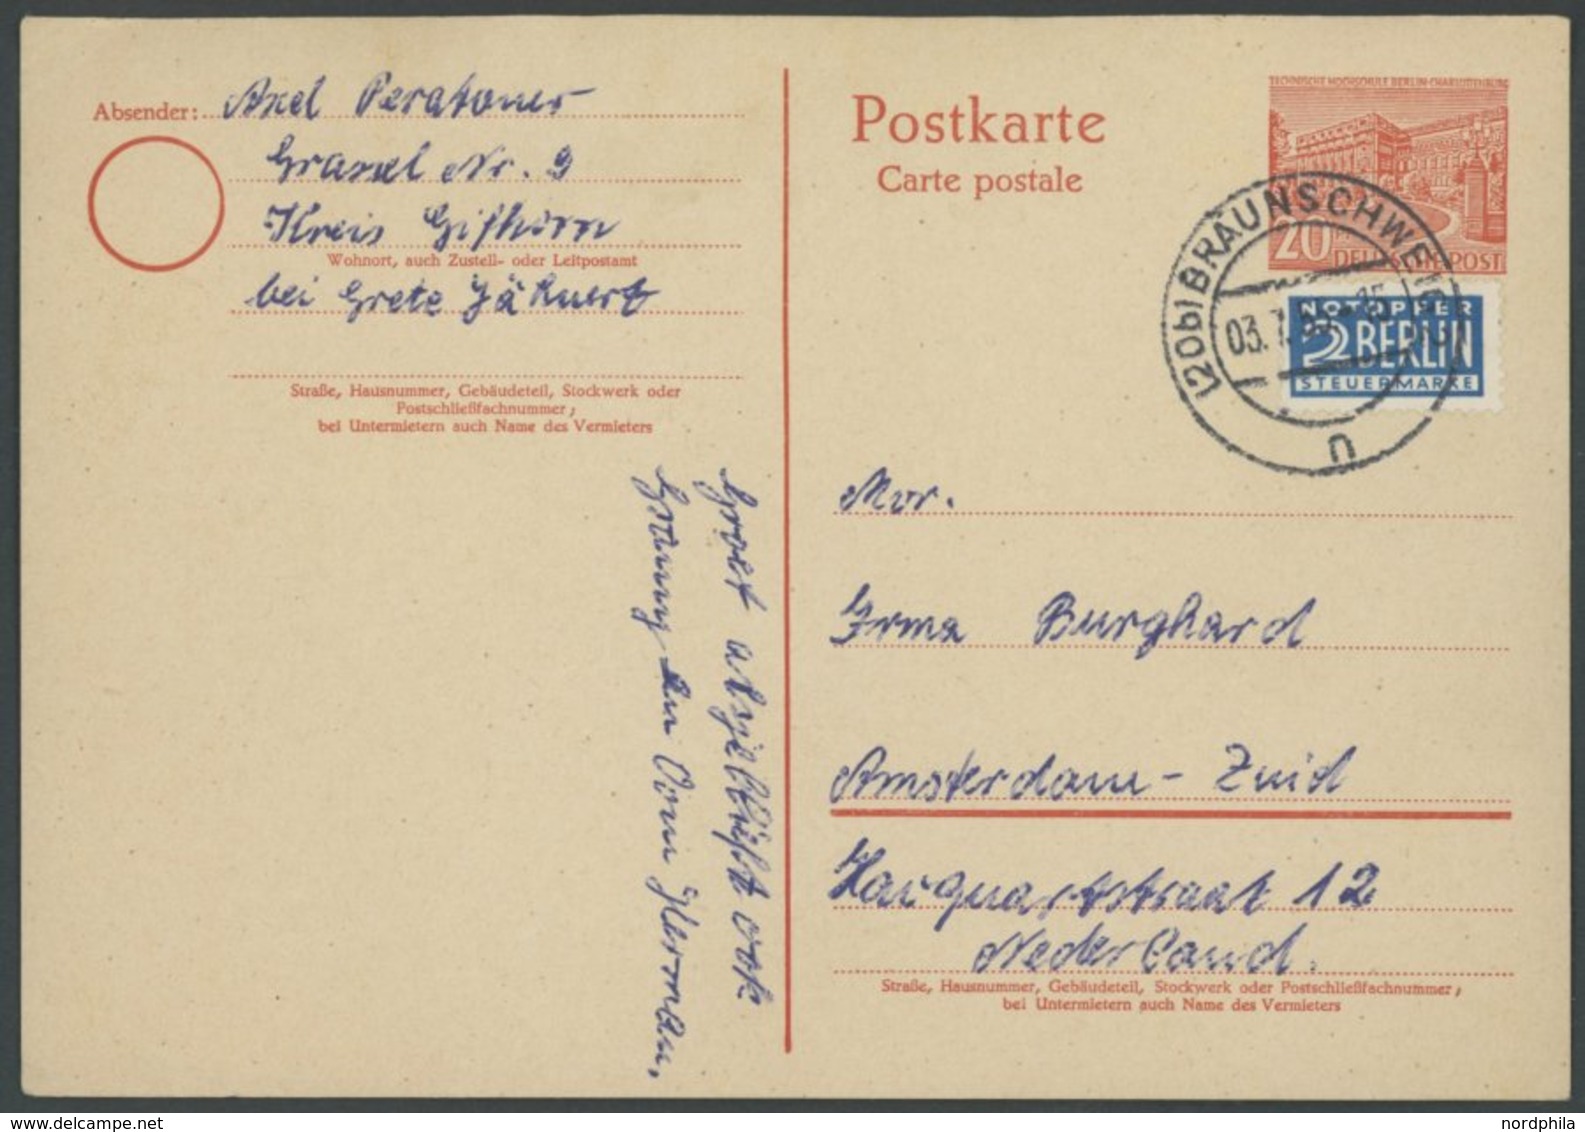 Absender: Axel Peratoner
Grassel Nr. 9
Kreis Gifhorn
Wohnort, auch Zustell- oder Leitpostamt
bei Grete Jäkuert
Straße, Hausnummer, Gebäudeteil, Stockwerk oder
Postschließfachnummer;
bei Untermietern auch Name des Vermieters
Groet alsjeblieft ook
Hermann.
Postkarte
Carte postale
TECHNISCHE HOCHSCHULE BERLIN-CHARLOTTENBURG
20 DEUTSCHE POST
(20b) BRAUNSCHWEIG
03.1.
u
NOTOPFER
2 BERLIN
STEUERMARKE
Mvr.
Irma Burghard
Amsterdam - Zuid
12
Nederland.
Straße, Hausnummer, Gebäudeteil, Stockwerk oder Postschließfachnummer;
bei Untermietern auch Name des Vermieters
nordphila